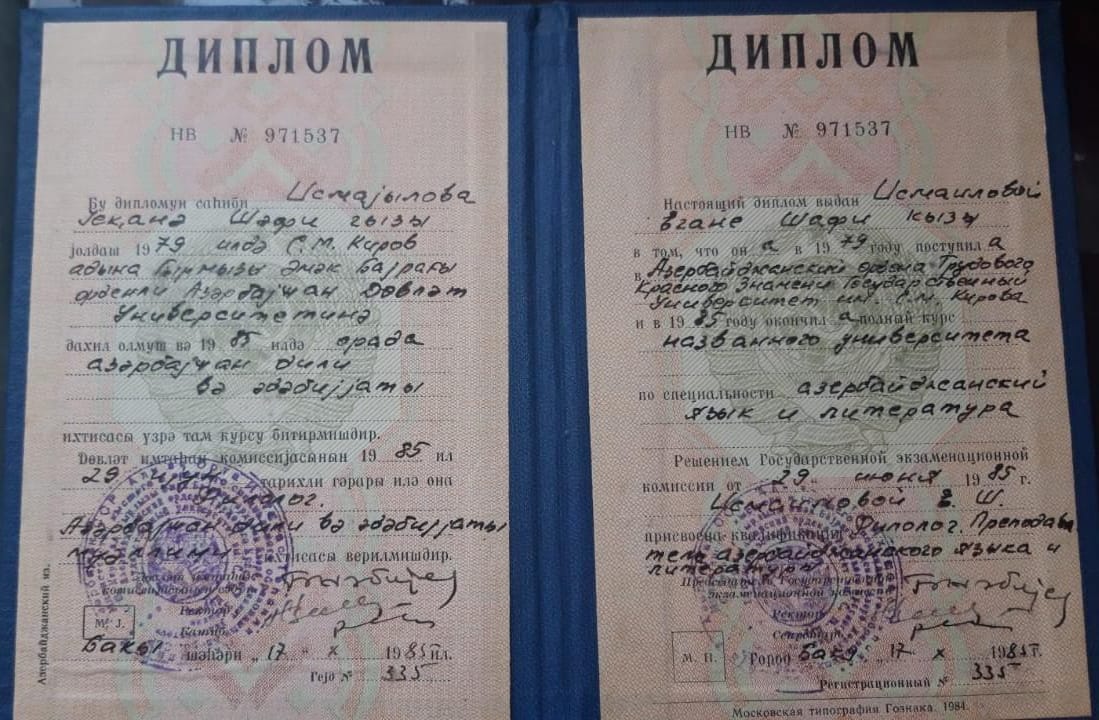 ДИПЛОМ
НВ № 971537
Бу дипломун саһиби Исмајылова
Јеҝанә Шафи гызы
јолдаш 1979 илдә С.М. Киров
адына Гырмызы Әмәк Байрағы
орденли Азәрбајҹан Дөвләт
Университетинә
дахил олмуш вә 1985 илдә орада
азәрбајҹан дили
вә әдәбијјаты
ихтисасы үзрә там курсу битирмишдир.
Дөвләт имтаһан комиссијасынын 1985 ил
29 ијун тарихли гәрары илә она
Филолог.
Азәрбајҹан дили вә әдәбијјаты
мүәллими ихтисасы верилмишдир.
Ректор
Катиб
М. Ј.
Бакы шәһәри „ 17 " х 1985 ил.
Гејд № 335
Азербайджанский яз.
ДИПЛОМ
НВ № 971537
Настоящий диплом выдан Исмаиловой
Егане Шафи кызы
в том, что он а в 1979 году поступил а
в Азербайджанский ордена Трудового
Красного Знамени Государственный
Университет им. С.М. Кирова
и в 1985 году окончил а полный курс
названного университета
по специальности азербайджанский
язык и литература
Решением Государственной экзаменационной
комиссии от „ 29 " июня 1985 г.
Исмаиловой Е. Ш.
присвоена квалификация Филолог. Преподава
тель азербайджанского языка и
литературы
Председатель Государственной
экзаменационной комиссии
Ректор
Секретарь
М. П.
Город Баку „ 17 " х 1985 г.
Регистрационный № 335
Московская типография Гознака. 1984.